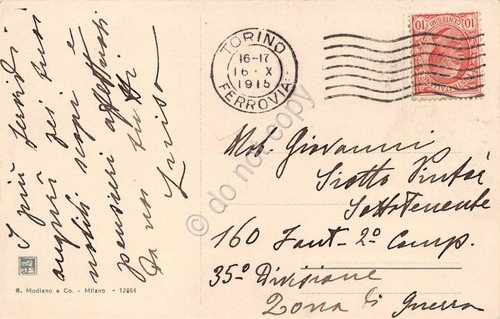 I più fervidi
auguri pei tuoi
nobili scopi e
pensieri affettuosi
da noi tutti
Luisa
G. Modiano e Co. - Milano. - 12854
TORINO
16-17
16·X
1915
FERROVIA
CENTESIMI
10 10
Nob. Giovanni
Siotto Pintor
Sottotenente
160 Fant- 2º Comp.
35º Divisione
Zona di Guerra
do not copy